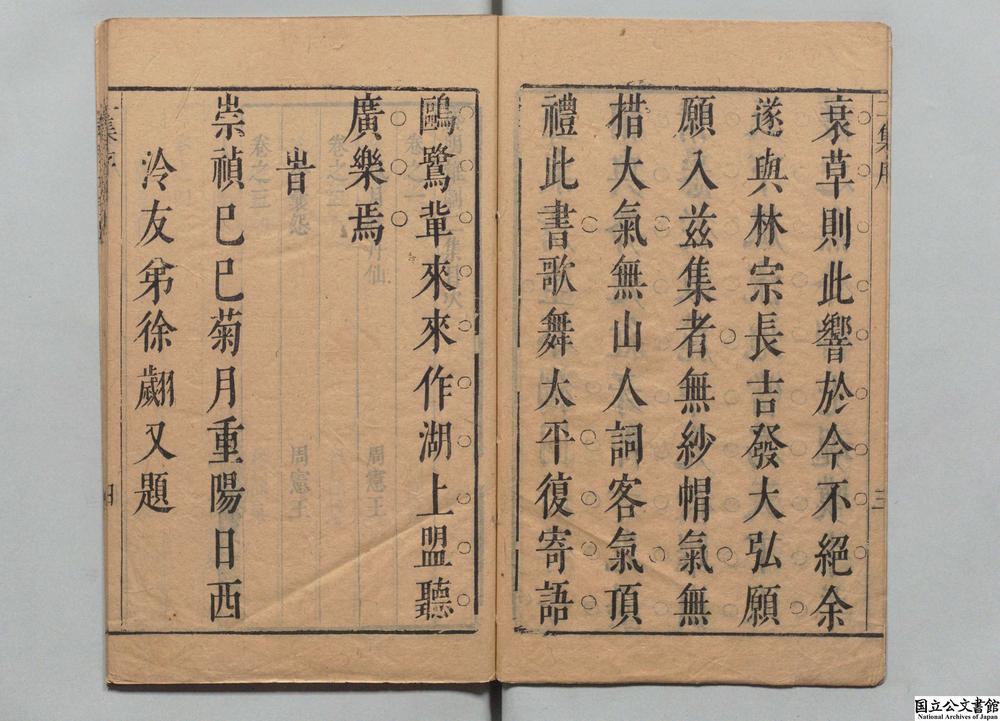 衰草則此響於今不絕余
遂與林宗長吉發大弘願
願入茲集者無紗帽氣無
措大氣無山人詞客氣頂
禮此書歌舞太平復寄語
鷗鷺軰來來作湖上盟聽
廣樂焉
旹
崇禎巳巳菊月重陽日西
泠友弟徐翽又題
三
四
周憲王
周憲王
国立公文書館
National Archives of Japan